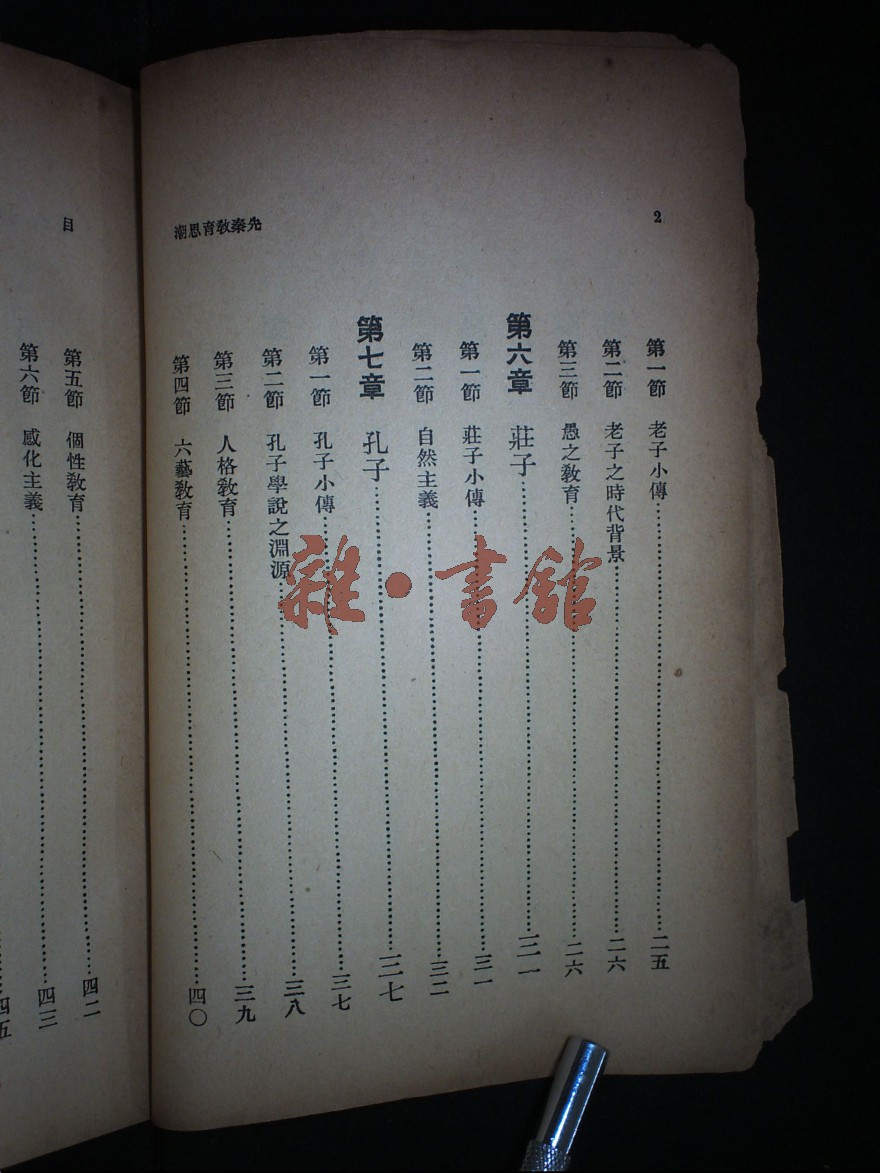 2
先秦教育思潮
第一節 老子小傳……二五
第二節 老子之時代背景……二六
第三節 愚之教育……二六
第六章 莊子……三一
第一節 莊子小傳……三一
第二節 自然主義……三二
第七章 孔子……三七
第一節 孔子小傳……三七
第二節 孔子學說之淵源……三八
第三節 人格教育……三九
第四節 六藝教育……四〇
目
第五節 個性教育……四二
第六節 感化主義……四三
四五
雜·書館